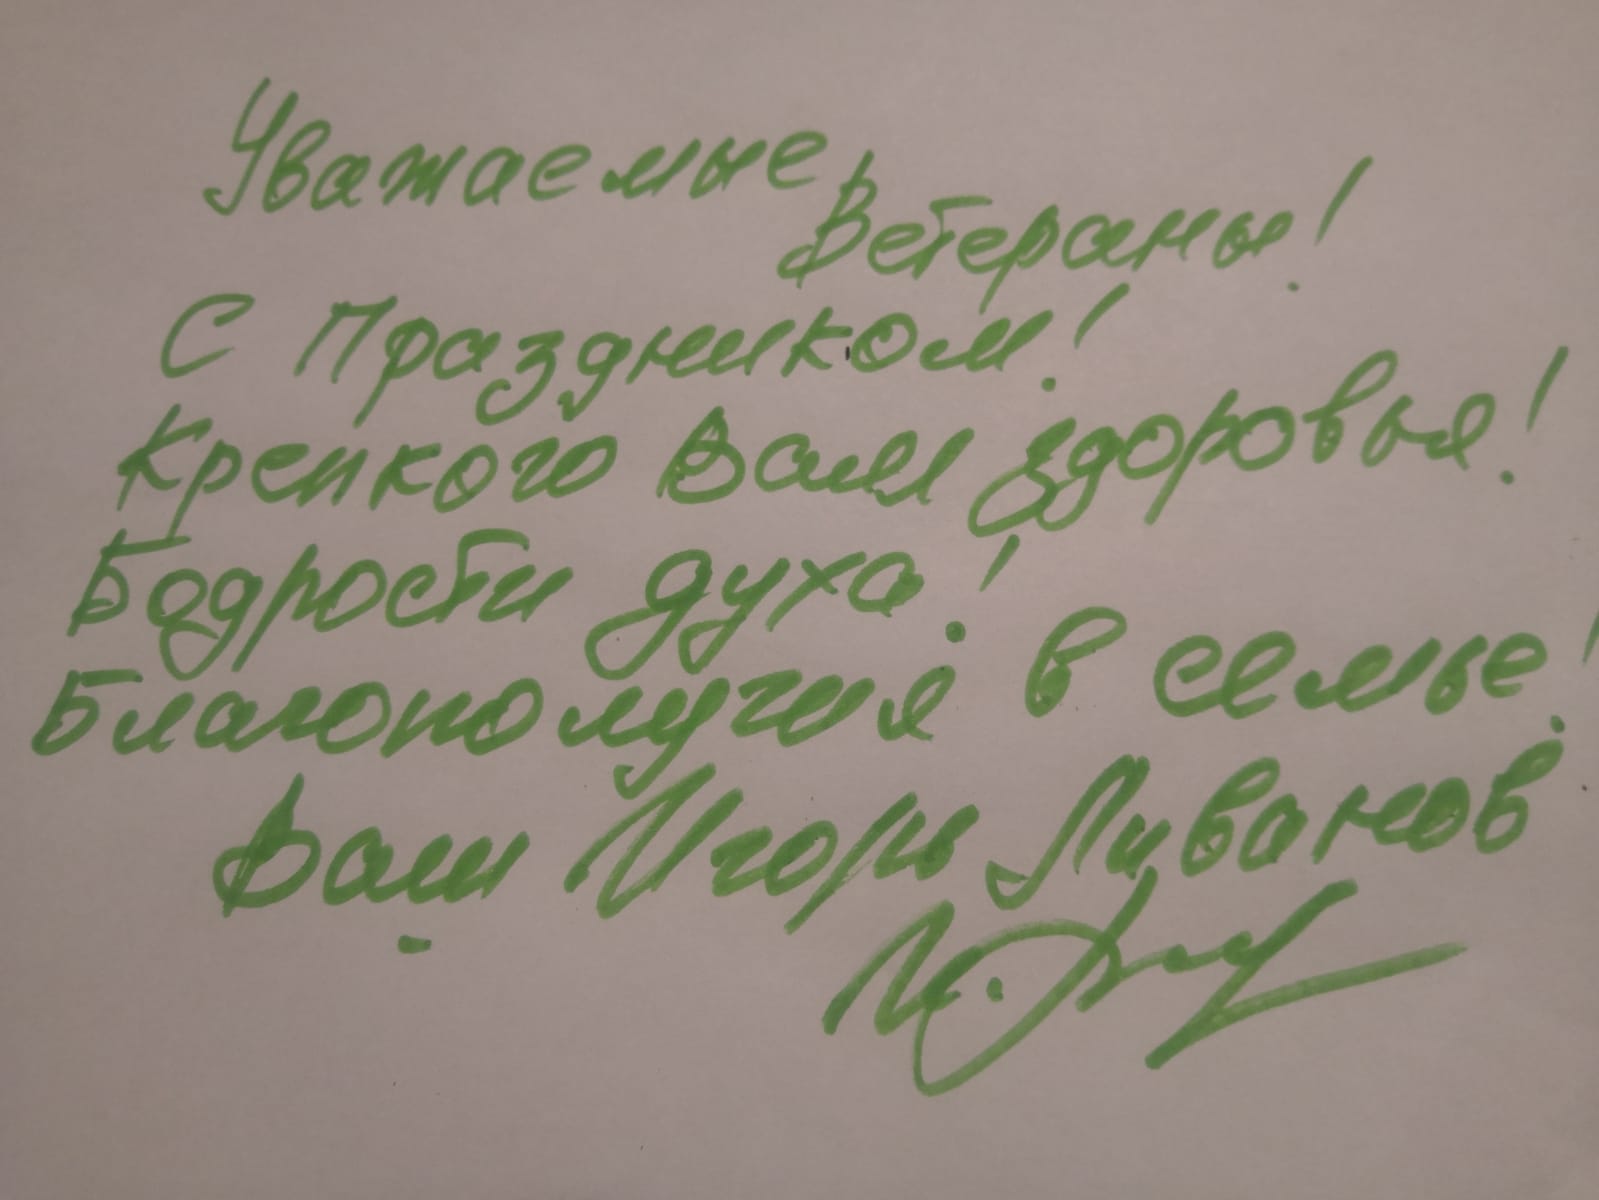 Уважаемые
Ветераны!
С Праздником!
Крепкого Вам здоровья!
Бодрости духа!
Благополучия в семье!
Ваш Игорь Ливанов